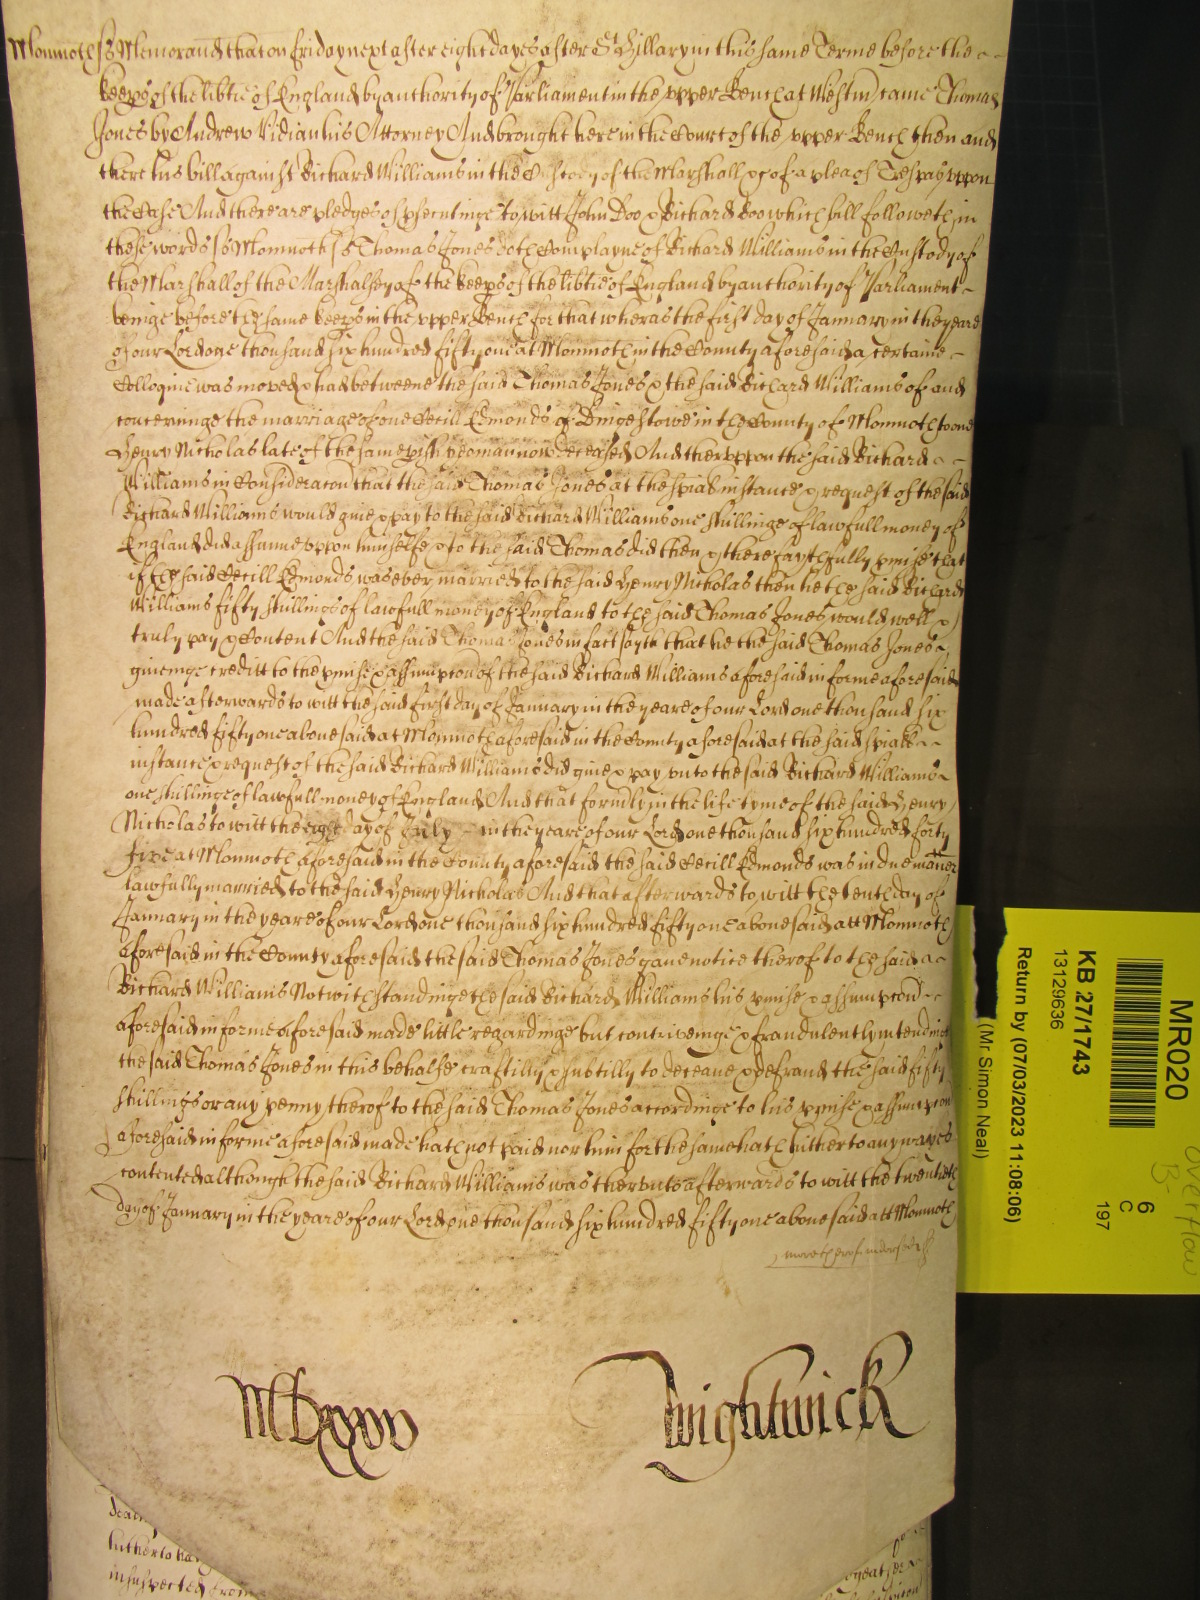 Monmoth ss Memorand that on friday next after eight dayes after St Hillary in this same Terme before the
keeps of the libtie of England by authority of Parliament in the upper Bench at Westm came Thomas
Jones by Andrew Vidian his Attorney And brought here in the Court of the upper Bench then and
there his bill against Richard Williams in the Custody of the Marshall &c of a plea of Trespas uppon
the Case And there are pledges of psecutinge to witt John Doo & Richard Roo which bill followeth in
these words ss Monmoth ss Thomas Jones doth Complayne of Richard Williams in the Custody of
the Marshall of the Marshalsey of the keeps of the libtie of England by authority of Parliament
beinge before the same keeps in the upper Bench for that wheras the first day of January in the yeare
of our Lord one thousand six hundred fifty one at Monmoth in the County aforesaid a certaine
Colloquie was moved & had betweene the said Thomas Jones & the said Richard Williams of and
conceringe the marriage of one Cecill Edmonds of Dingestowe in the County of Monmoth to one
Henry Nicholas late of the same pish yeoman now deceased And theruppon the said Richard
Williams in Consideracon that the said Thomas Jones at the spiall instance & request of the said
Richard Williams would give & pay to the said Richard Williams one shillinge of lawfull money of
England did assume uppon himselfe & to the said Thomas did then & there faythfully pmise that
if the said Cecill Edmonds was ever married to the said Henry Nicholas then he the said Richard
Williams fifty shillings of lawfull money of England to the said Thomas Jones would well &
truly pay & Content And the said Thomas Jones in fact sayth that he the said Thomas Jones
giveinge creditt to the pmise & assumpcon of the said Richard Williams aforesaid in forme aforesaid
made afterwards to witt the said first day of January in the yeare of our Lord one thousand six
hundred fifty one abovesaid at Monmoth aforesaid in the County aforesaid at the said spiall
instance & request of the said Richard Williams did give & pay unto the said Richard Williams
one shillinge of lawfull money of England And that formrly in the life tyme of the said Henry
Nicholas to witt the eight day of July in the yeare of our Lord one thousand six hundred forty
five at Monmoth aforesaid in the County aforesaid the said Cecill Edmonds was in due maner
lawfully married to the said Henry Nicholas And that afterwards to witt the tenth day of
January in the yeare of our Lord one thousand six hundred fifty one abovesaid att Monmoth
aforesaid in the County aforesaid the said Thomas Jones gave notice therof to the said
Richard Williams Notwithstandinge the said Richard Williams his pmise & assumpcon
aforesaid in forme aforesaid made little regardinge but contriveinge & fraudulently intendinge
the said Thomas Jones in this behalfe craftilly & subtilly to deceave & defraud the said fifty
shillings or any penny therof to the said Thomas Jones accordinge to his pmise & assumpcon
aforesaid in forme aforesaid made hath not paid nor him for the same hath hitherto any wayes
contented although the said Richard Williams was therunto afterwards to witt the twentieth
day of January in the yeare of our Lord one thousand six hundred fifty one abovesaid att Monmoth
more therof indorsed
Wightwick
hitherto
unsuspected from
MR020
KB 27/1743
13129636
Return by (07/03/2023 11:08:06)
(Mr Simon Neal)
6
C
197
Overflow
B-